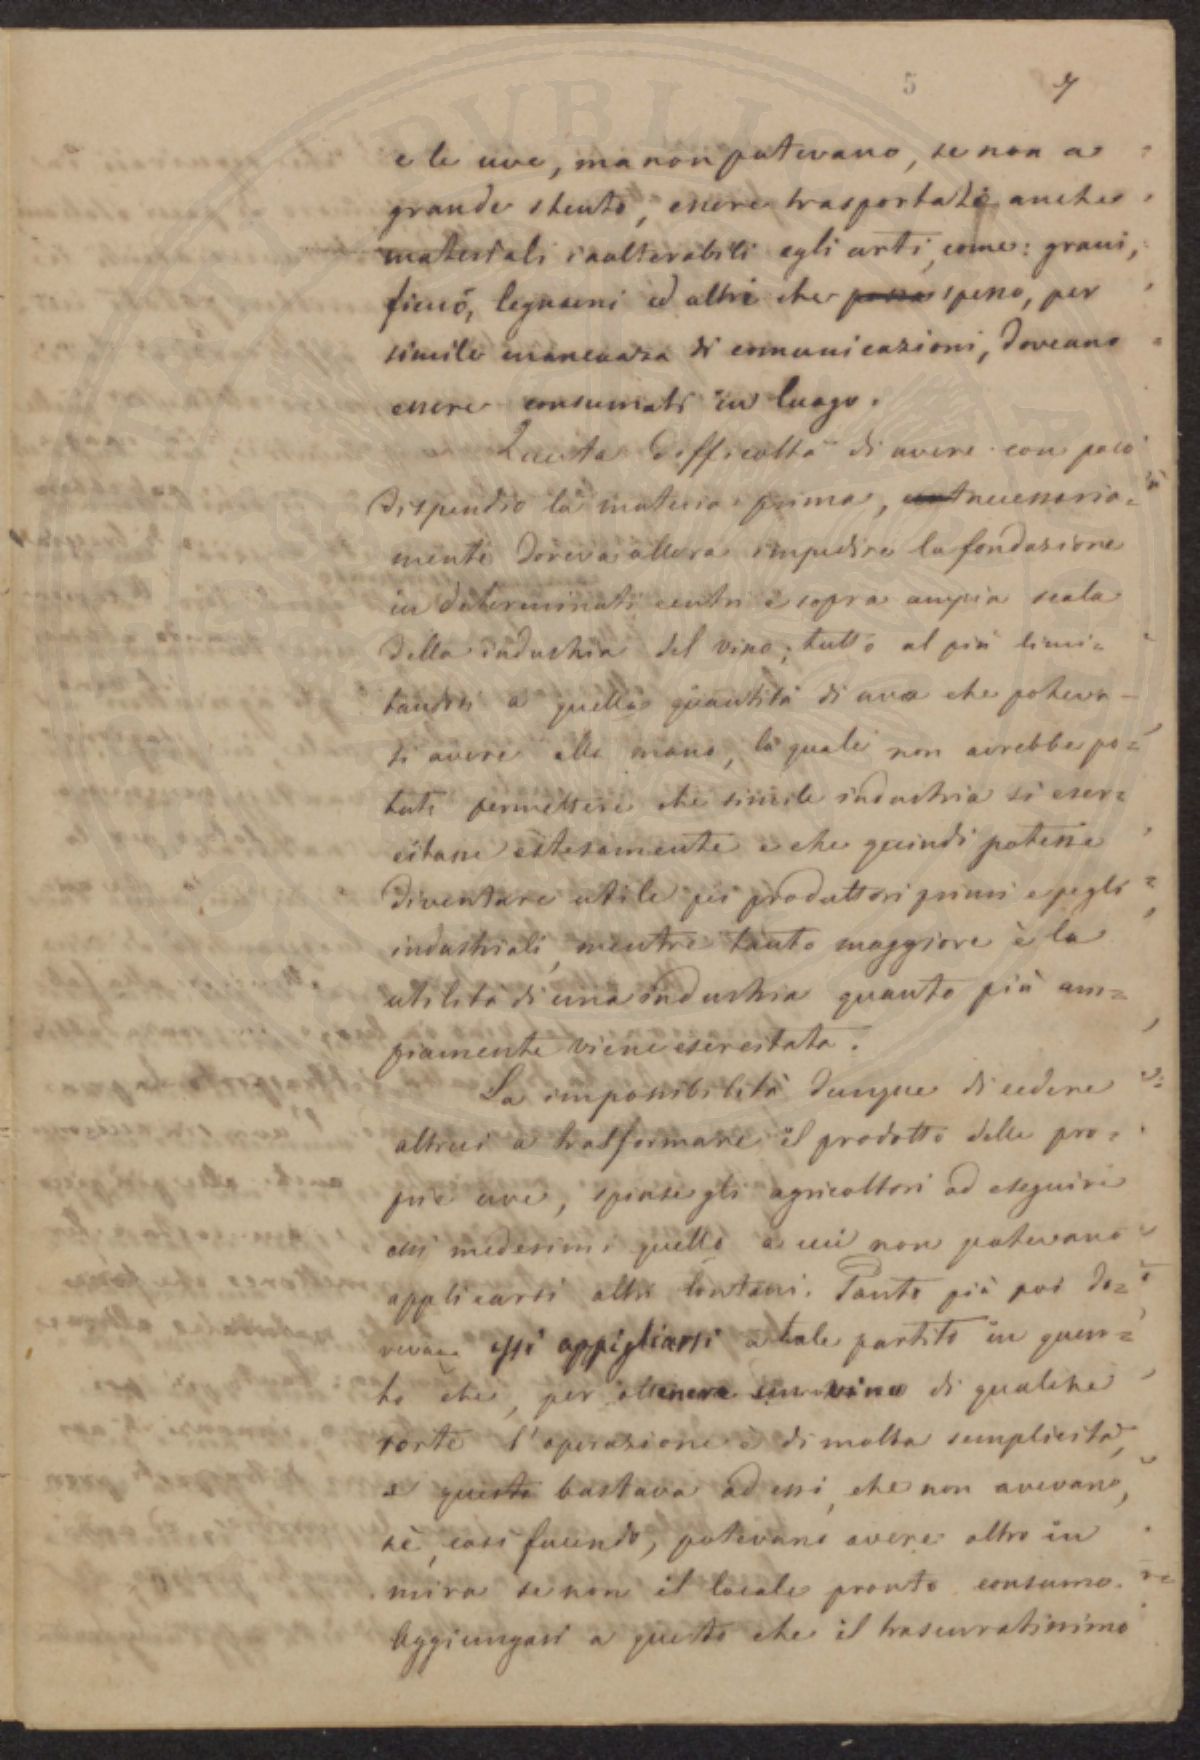 5 7
e le uve, ma non potevano, se non a
grande stento, essere trasportati anche
materiali inalterabili egli urti, come: grani,
fieno, legnami ed altri che spesso, per
simile mancanza di comunicazioni, doveano
essere consumati in luogo.
Questa difficoltà di avere con poco
dispendio la materia prima, necessaria=
mente doveva allora impedire la fondazione
in determinati centri e sopra ampia scala
della industria del vino; tutto al più limi=
tandosi a quella quantità di uva che poteva-
si avere alla mano, la quale non avrebbe po=
tuto permettere che simile industria si eser=
citasse estesamente e che quindi potesse
diventare utile pei produttori primi e pegli
industriali, mentre tanto maggiore è la
utilità di una industria quanto più am=
piamente viene esercitata.
La impossibilità dunque di cedere
altrui a trasformare il prodotto delle pro=
prie uve, spinse gli agricoltori ad eseguire
essi medesimi quello a cui non potevano
applicarsi altri lontani. Tanto più poi do=
vevano essi appigliarsi a tale partito in quan=
to che, per ottenere un vino di qualche
sorte l'operazione è di molta semplicità,
e questo bastava ad essi, che non avevano,
nè, così facendo, potevano avere altro in
mira se non il locale pronto consumo.
Aggiungasi a questo che il trascuratissimo